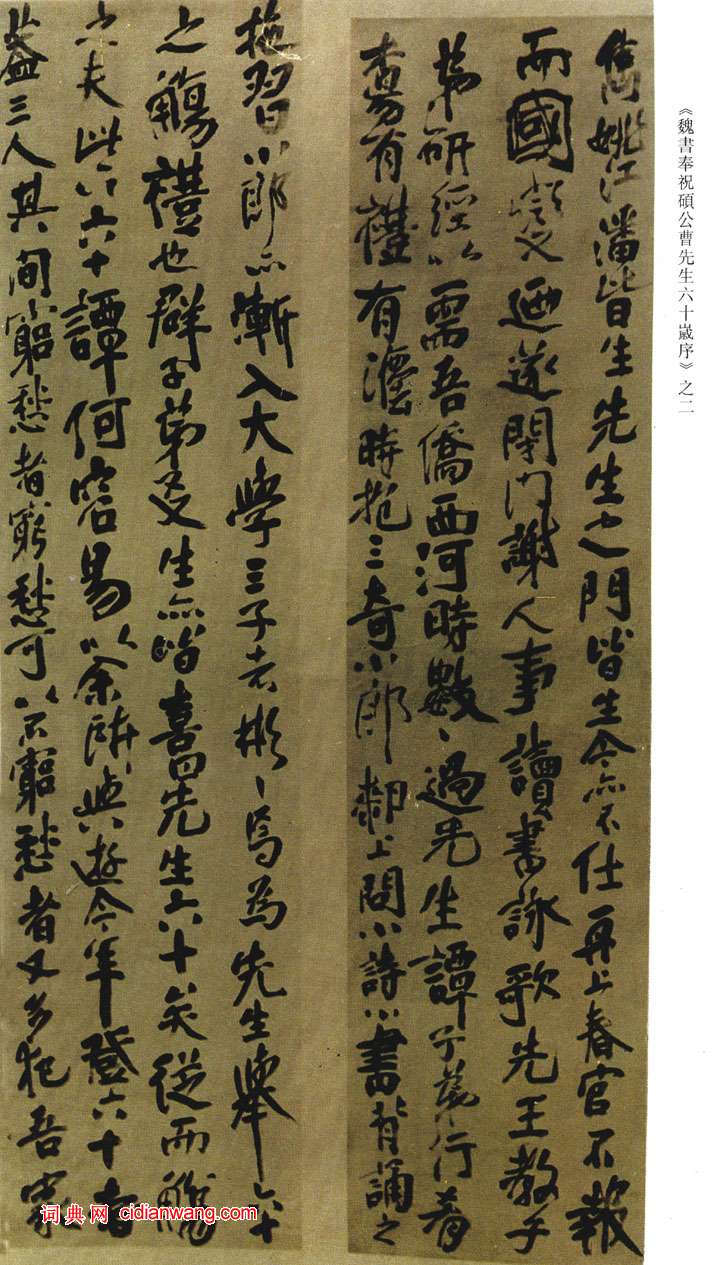 《魏書奉祝碩公曹先生六十嵗序》之二
姚江潘皆生先生之門皆生今亦不仕再上春官不報
而國變迺遂閉門謝人事讀書詠歌先王教子
弟研經以需吾僑西河時數〻過先生譚子弟行有
有禮有瀍時抱三奇小郎上問小詩小書背誦之
施習小郎亦漸入大學三子者彬〻焉為先生舉六十
之觴禮也群子弟及生亦皆喜曰先生六十矣從而觴
之夫此六十譚何容易以余所與遊今年登六十者
蓋三人其間窮愁者窮愁可以不窮愁者又多犯吾家
词典网 cidianwang.com